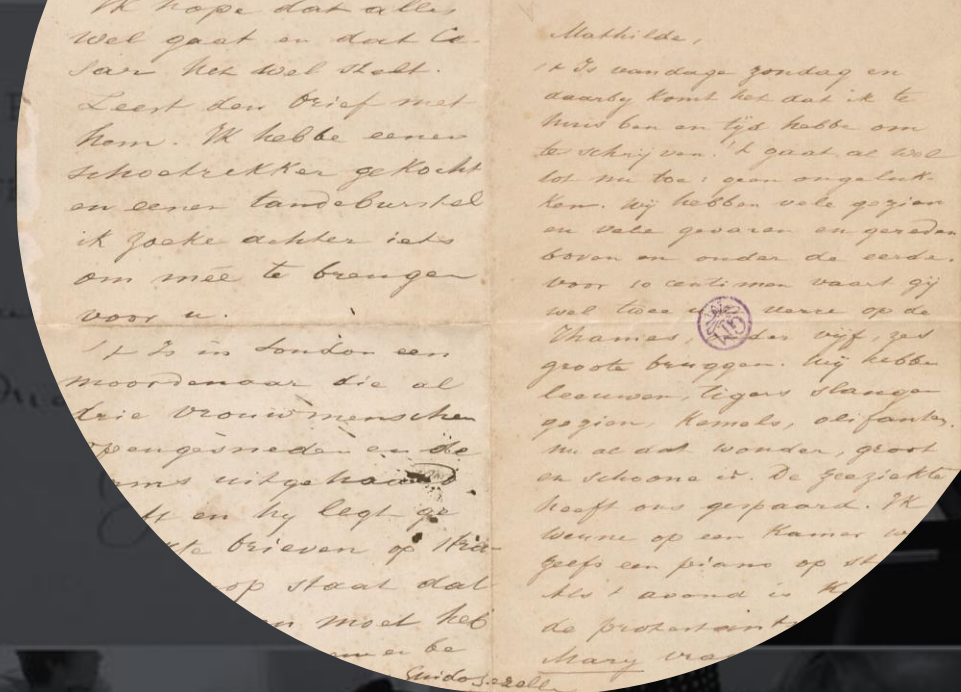 Ik hope dat alles
wel gaat en dat Ce-
sar het wel stelt.
Leest den brief met
hem. Ik hebbe eenen
schoetrekker gekocht
en eenen tandeburstel
ik zoeke achter iets
om meê te brengen
voor u.
't Is in London een
moordenaar die al
drie vrouwmenschen
opengesneden en de
uitgehaald
en hy legt ge
brieven op stra-
op staat dat
moet heb
be
Guido Gezelle
Mathilde,
't Is vandage zondag en
daarby komt het dat ik te
huis ben en tyd hebbe om
te schryven. 't gaat al wel
tot nu toe: geen ongeluk-
ken. Wy hebben vele gezien
en vele gevaren en gereden
boven en onder de eerde.
voor 10 centimen vaart gy
wel twee verre op de
Thames, vyf, zes
groote bruggen. Wy hebben
leeuwen, tigers slangen
gezien, kemels, olifanten,
en al dat wonder, groot
en schoone is. De zeeziekte
heeft ons gespaard. Ik
weune op een kamer
een piano op
Als 't avond is
de protestants
Mary